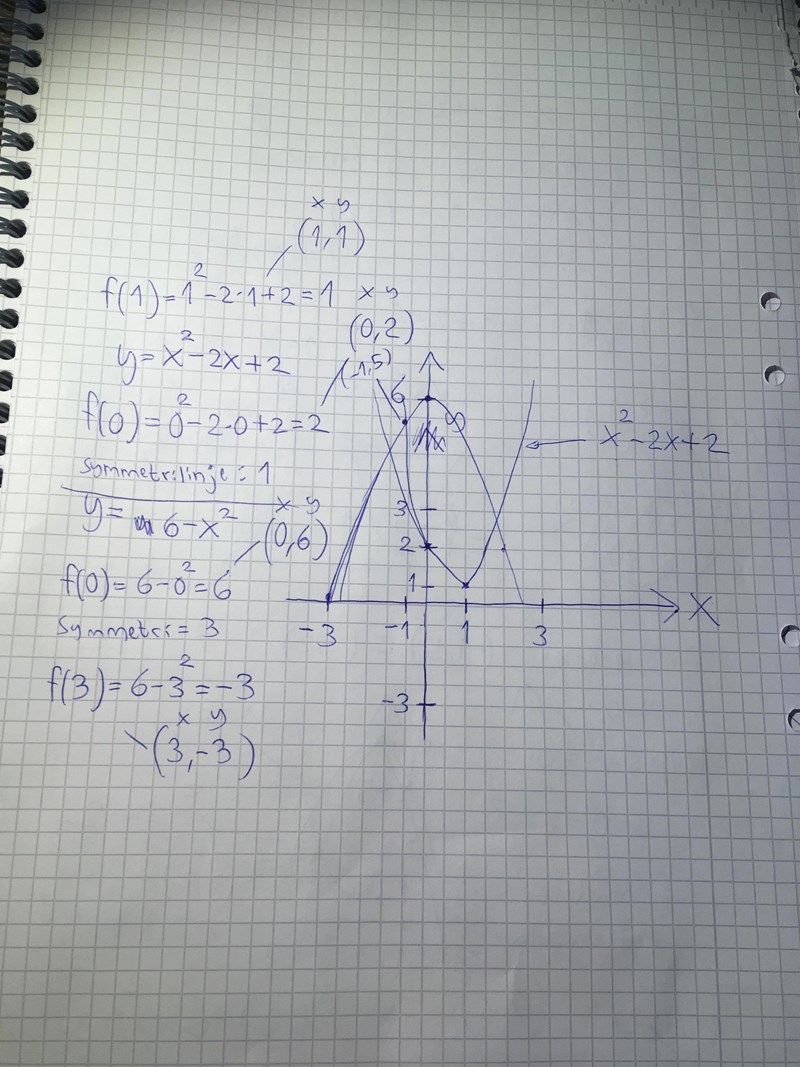 x y
(1,1)
f(1)=1²-2·1+2=1
x y
(0,2)
y=x²-2x+2
(-1,5)
f(0)=0²-2·0+2=2
symmetrilinje: 1
y= 6-x²
x y
(0,6)
f(0)=6-0²=6
Symmetri=3
f(3)=6-3²=-3
x y
(3,-3)
6
x²-2x+2
3
2
1
-3 -1 1 3 X
-3